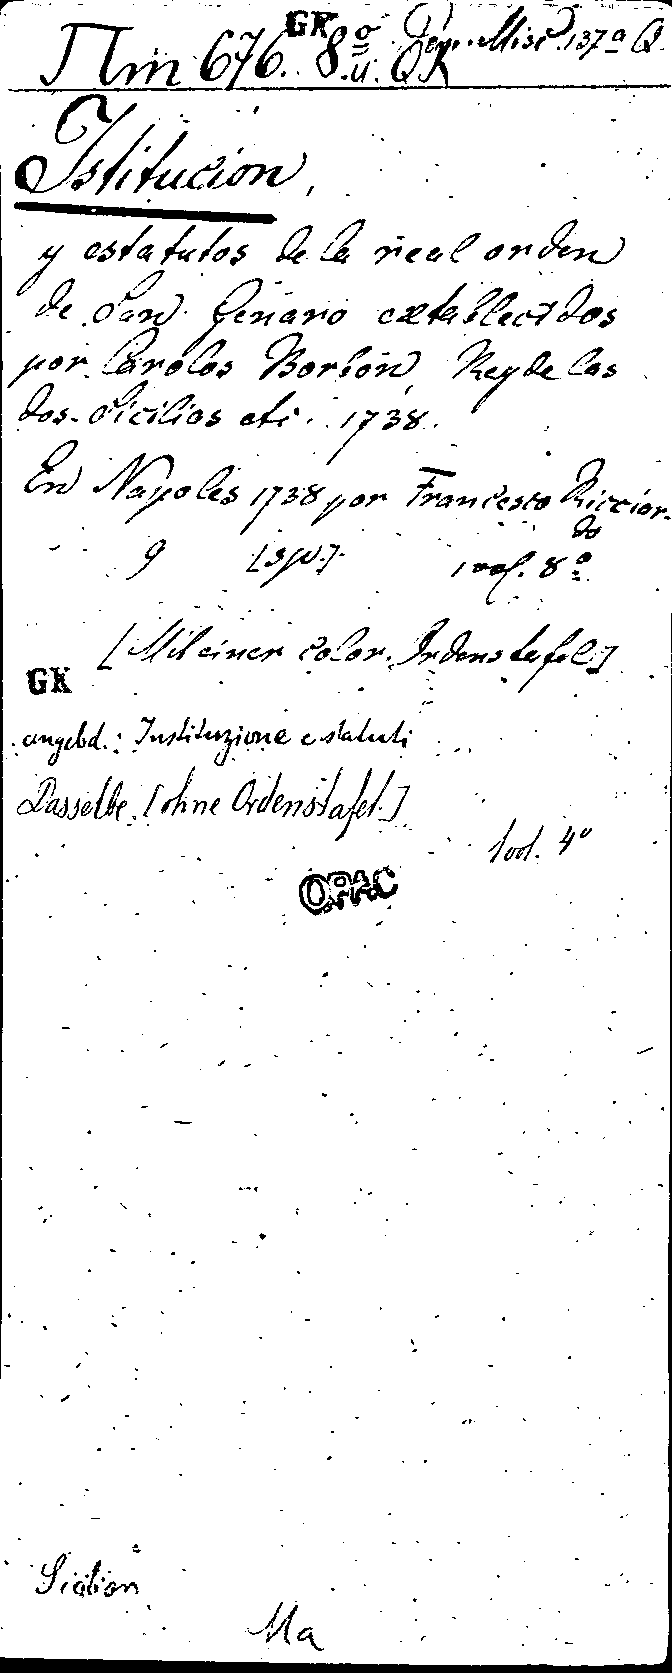 GK
Πm 676. 8º u. Gen. Misc. 137ª Q.
Istitucion,
y estatutos de la real orden
de San Genaro establecidos
por Carolos Borbón, Rey de las
dos Sicilias etc. 1738.
En Napoles 1738 por Francesco Ricciar-
do
9 [Sp.] 1 vol. 8º
[Mit einer color. Ordenstafel]
GK
angebd.: Instituzione e statuti
Dasselbe. [ohne Ordenstafel.]
1 vol. 4º
OPAC
Ma